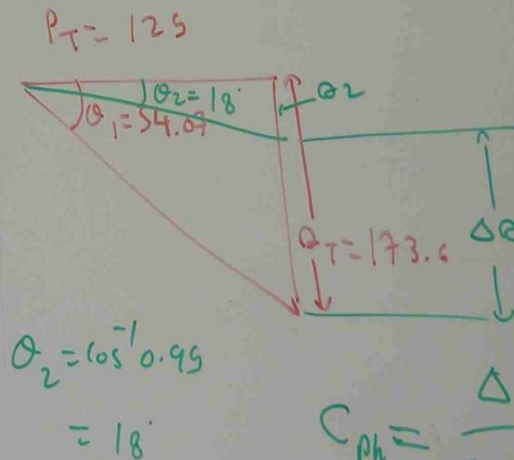 P_T = 125
θ2 = 18°
Q2
θ1 = 54.07
Q_T = 173.6
ΔQ
θ2 = cos⁻¹ 0.95
= 18°
C_ph = Δ